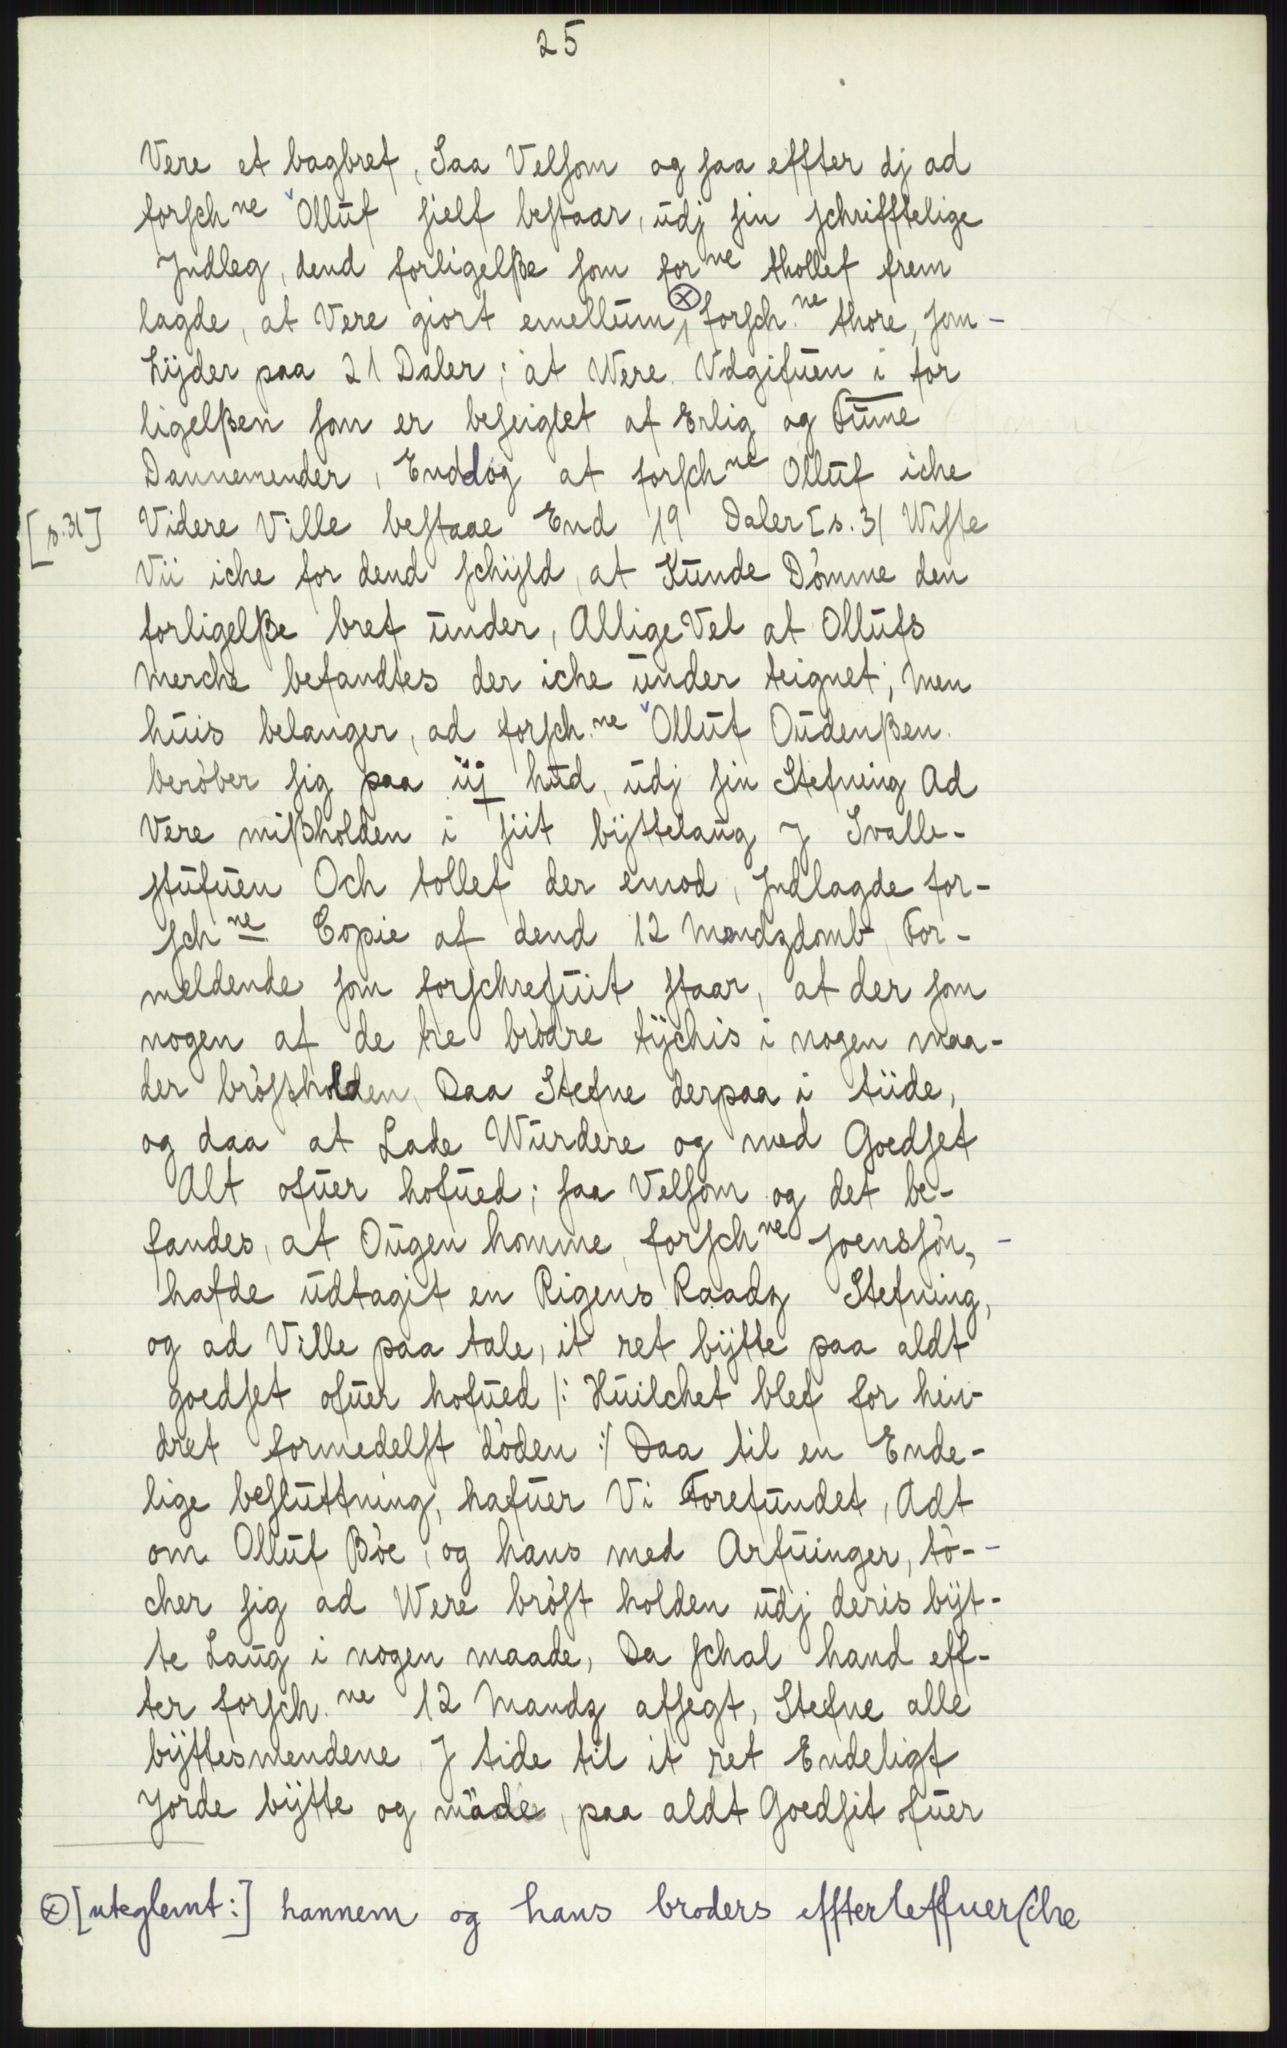 25
Vere et bagbref, Saa Velsom og saa effter dj ad
forsch ne Olluf sielf bestaar, udj sin schrifftelige
Jndleg, dend forligelsße som for ne thollef frem
lagde, at Vere giort emellum, ⓧ forsch. ne thore, som-
Lÿder paa 21 Daler; at Were Udgifuen i for
ligelßen som er beseiglet af Erlig og Fume
Dannemender, Enddog at forsch ne Olluf iche
[s.31] Videre Ville bestaae End 19 Daler [s. 31 Wiste
Vii iche for dend schÿld, at Kunde Dómme den
forligelße bref under, Allige Vel at Ollufs
Merche befandtes der iche under teignet; Men
huis belanger, ad forsch. ne Olluf Oudenßen.
beróber sig paa iij hud, udj sin Stefning Ad
Vere mißholden i siit bÿttelaug J Svalle-
stufuen Och tollef der emod, Jndlagde for-
sch ne Copie af dend 12 Mandzdomb For-
meldende som forschrefuit staar, at der som
nogen af de tre bródre tÿchis i nogen maa-
der bróstholden, Daa Stefne derpaa i tiide,
og daa at Lade Wurdere og med Goedset
Alt ofuer hofued; saa Velsom og det be-
fandes, at Ougen homme, forsch ne Joenssón,-
hafde udtagit en Rigens Raadz Stefning,
og ad Ville paa tale, it ret bÿtte paa aldt
goedset ofuer hofued /: Huilchet blef for hin-
dret formedelst dóden :/ Daa til en Ende-
lige besluttning, hafuer Vi Forefundet, Adt
om Olluf Bóe, og hans med Arfuinger, tó--
cher sig ad Were bróst holden udj deris bÿt-
te Laug i nogen maade, Da schal hand eff-
ter forsch. ne 12 Mandz afsegt, Stefne alle
bÿttesmendene J tide til it ret Endeligt
Jorde bÿtte og måde, paa aldt Goedsit ofuer
ⓧ [uteglemt:] hannem og hans broders effterleffuersche